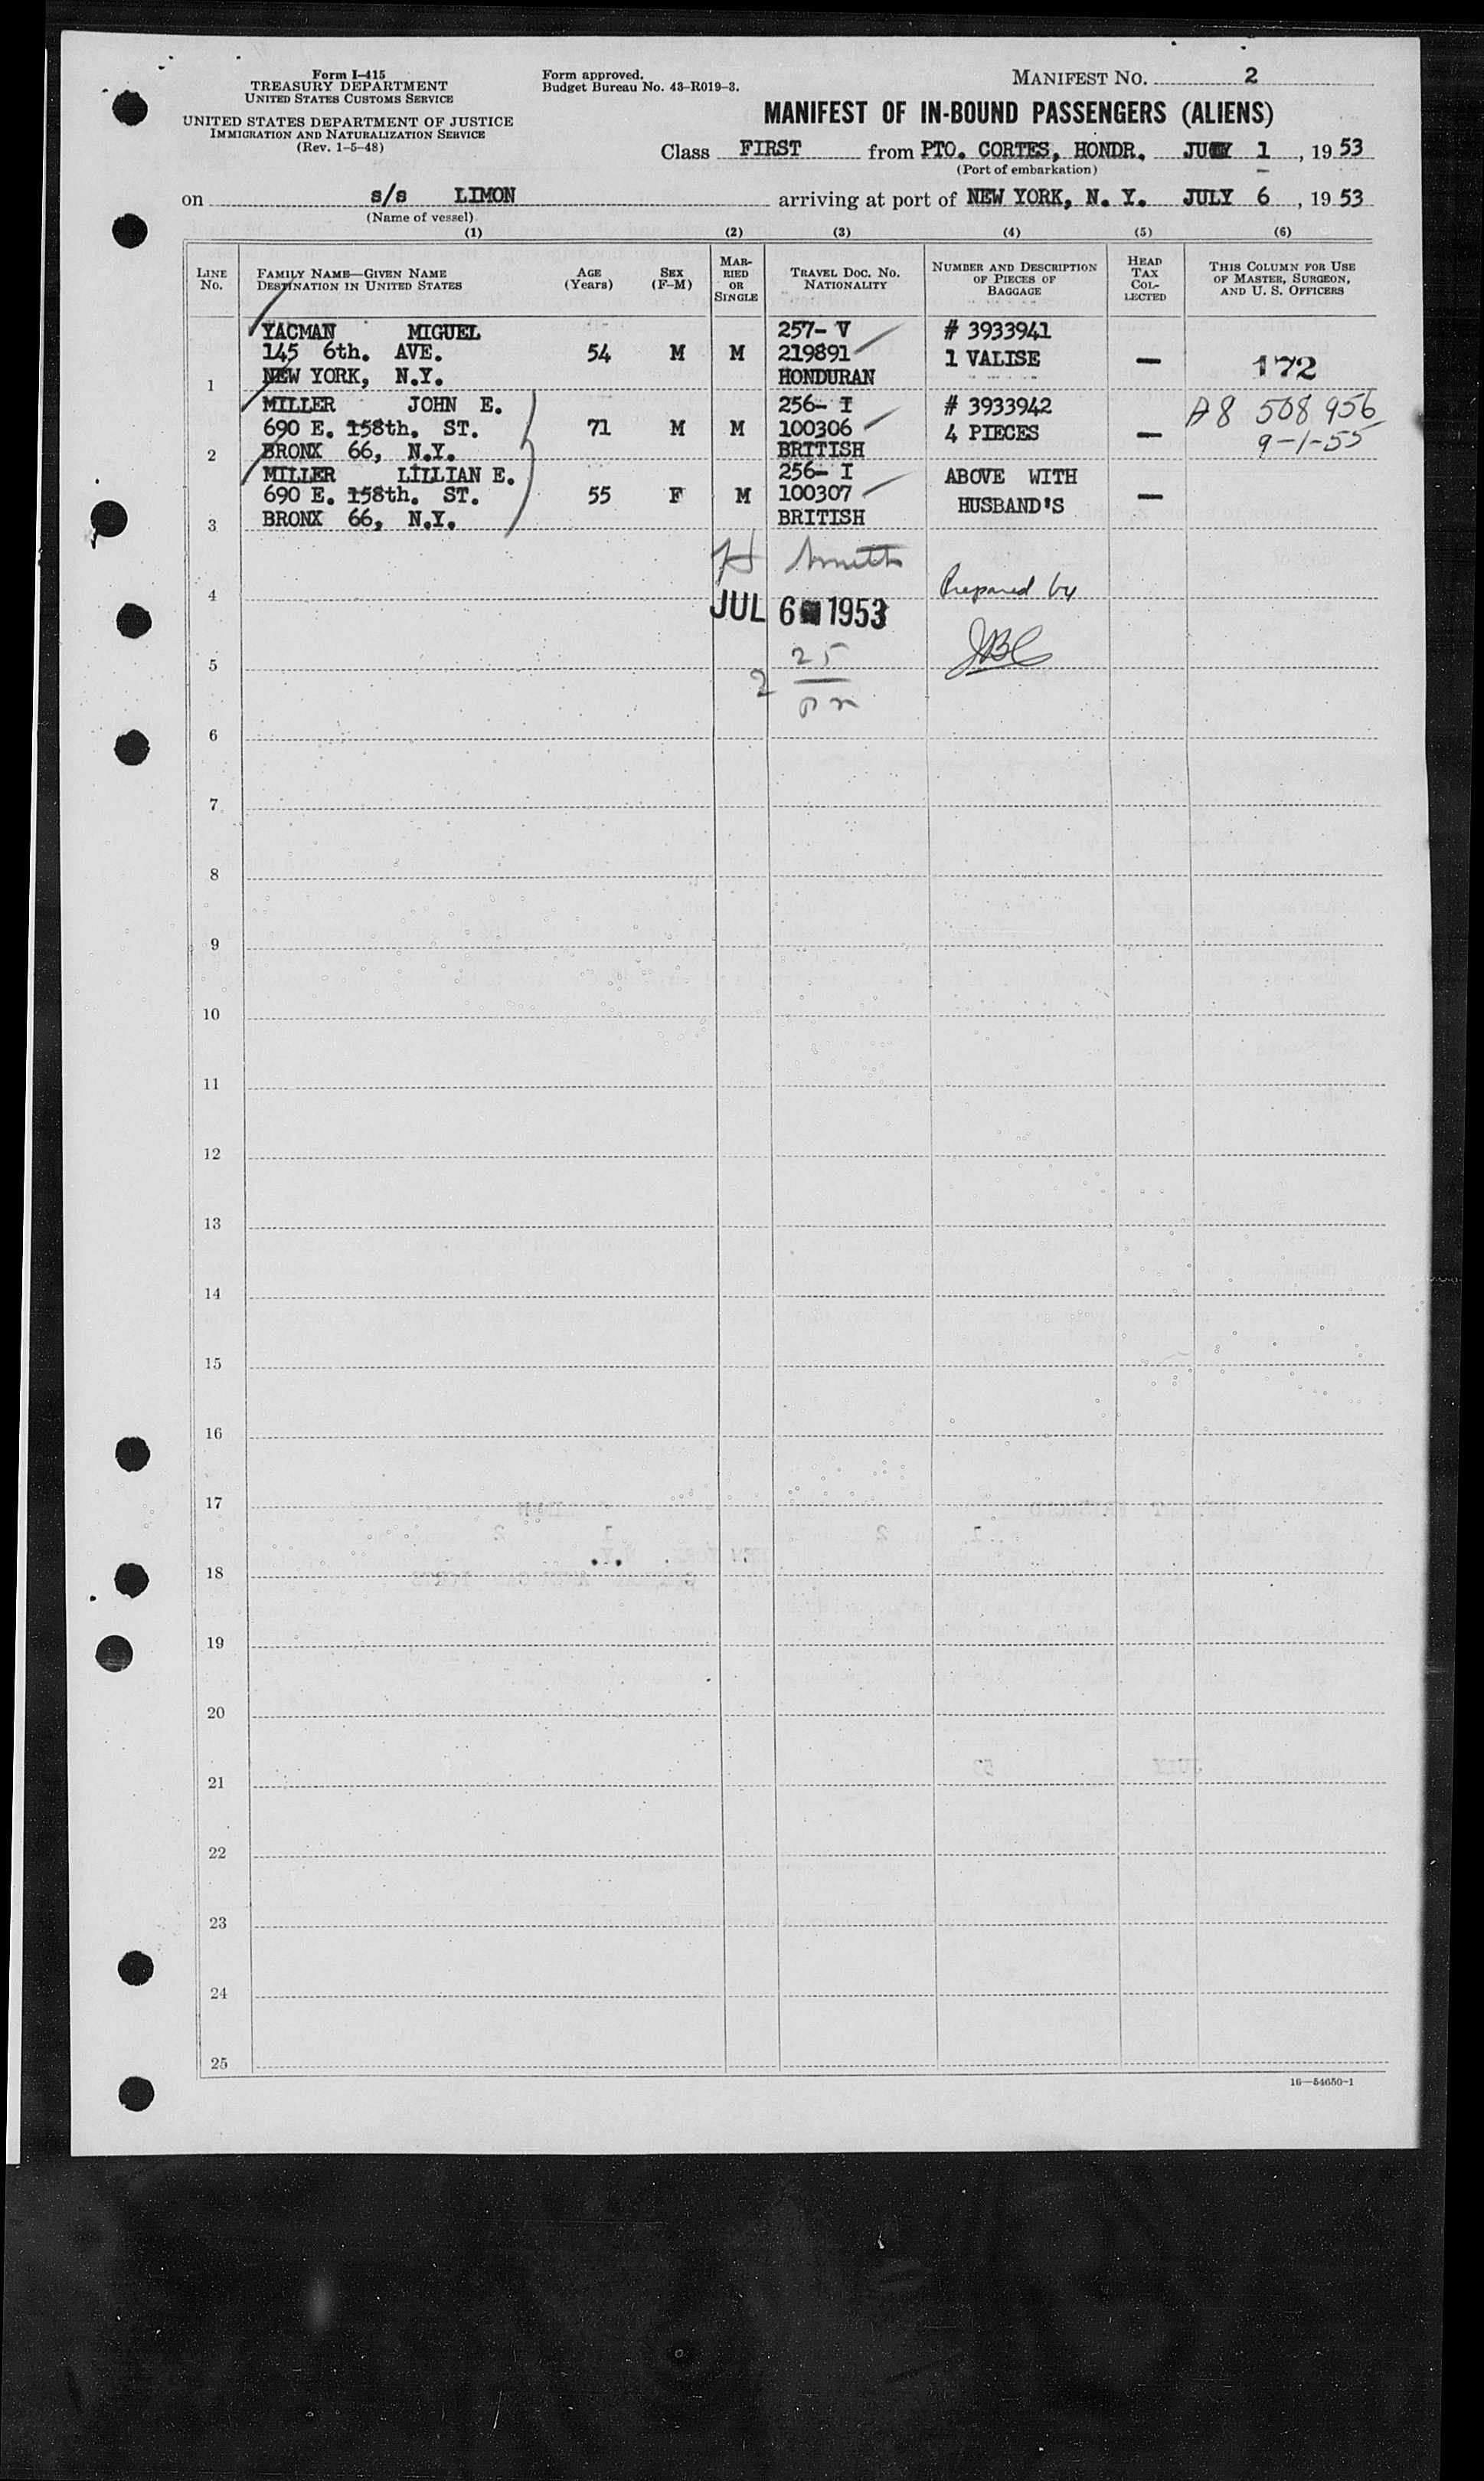 Form I-415
TREASURY DEPARTMENT
UNITED STATES CUSTOMS SERVICE
UNITED STATES DEPARTMENT OF JUSTICE
IMMIGRATION AND NATURALIZATION SERVICE
(Rev. 1-5-48)
Form approved.
Budget Bureau No. 43-R019-3.
MANIFEST NO. 2
MANIFEST OF IN-BOUND PASSENGERS (ALIENS)
Class FIRST from PTO. CORTES, HONDR. JULY 1, 1953
(Port of embarkation)
on s/s LIMON arriving at port of NEW YORK, N. Y. JULY 6, 1953
(Name of vessel)
(1) (2) (3) (4) (5) (6)
LINE NO.
FAMILY NAME—GIVEN NAME
DESTINATION IN UNITED STATES
AGE (Years)
SEX (F-M)
MARRIED OR SINGLE
TRAVEL DOC. NO. NATIONALITY
NUMBER AND DESCRIPTION OF PIECES OF BAGGAGE
HEAD TAX COLLECTED
THIS COLUMN FOR USE OF MASTER, SURGEON, AND U. S. OFFICERS
YACMAN MIGUEL 257- V # 3933941
145 6th. AVE. 54 M M 219891 1 VALISE — 172
1 NEW YORK, N.Y. HONDURAN
MILLER JOHN E. 256- I # 3933942 A8 508 956
690 E. 158th. ST. 71 M M 100306 4 PIECES — 9-1-55
2 BRONX 66, N.Y. BRITISH
MILLER LILLIAN E. 256- I ABOVE WITH
690 E. 158th. ST. 55 F M 100307 HUSBAND'S —
3 BRONX 66, N.Y. BRITISH
H Smith
4 Prepared by
JUL 6 1953
JBC
5 2 25
6
7
8
9
10
11
12
13
14
15
16
17
18
19
20
21
22
23
24
25
16—54650-1